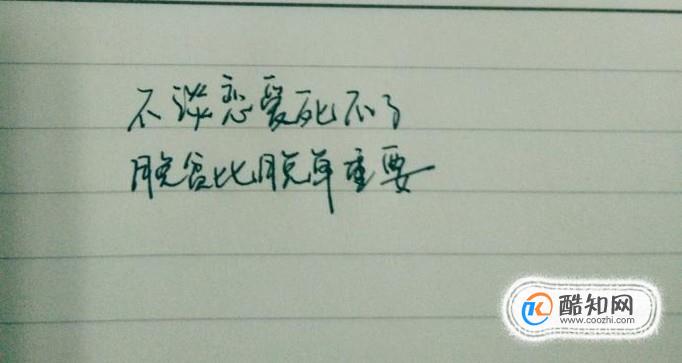 不谈恋爱死不了
脱贫比脱单重要
酷知网
www.coozhi.com